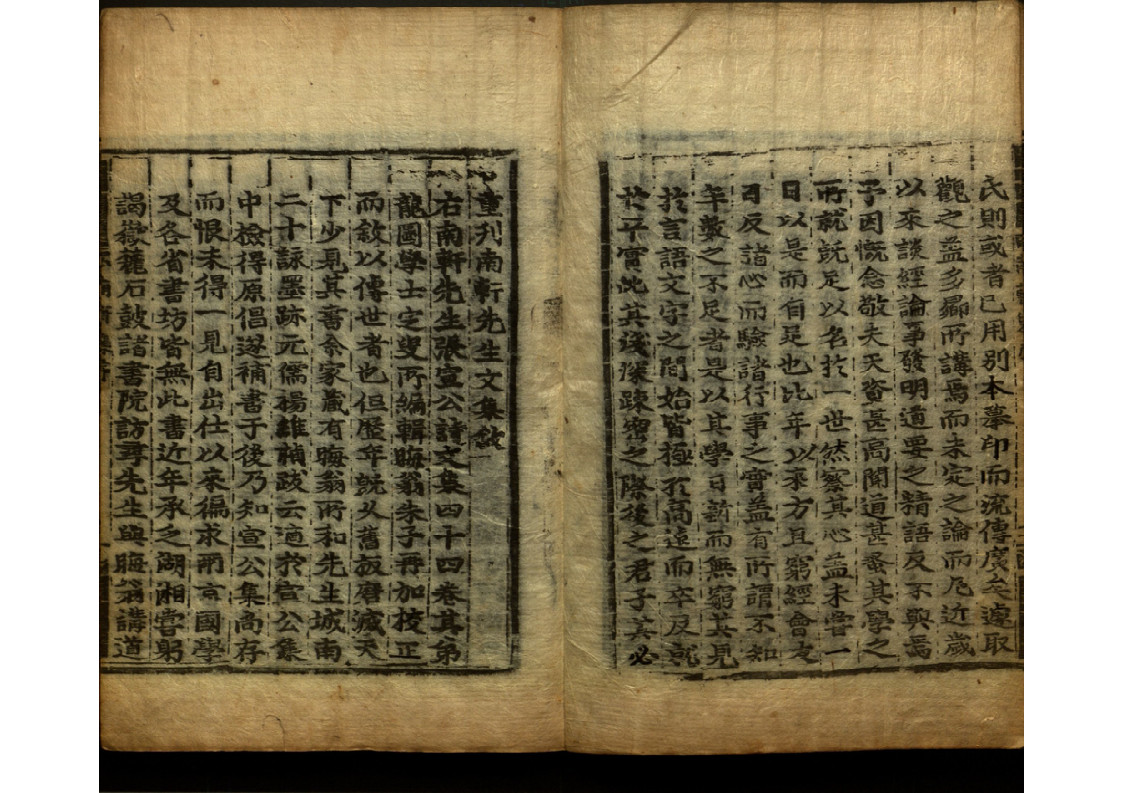 氏則或者已用別本摹印而流傳廣矣遽取
觀之盖多鄉所講焉而未定之論而凡近歲
以來談經論事發明道要之精語反不與焉
予因慨念敬夫天資甚高聞道甚蚤其學之
所就旣足以名於一世然察其心盖未甞一
日以是而自足也比年以來方且窮經會友
日反諸心而驗諸行事之實盖有所謂不知
年數之不足者是以其學日新而無窮其見
於言語文字之間始皆極於高遠而卒反就
於平實此其淺深踈密之際後之君子其必
重刋南軒先生文集敘
右南軒先生張宣公詩文集四十四卷其弟
龍圖學士定叟所編輯晦翁朱子再加校正
而敘以傳世者也但歷年旣久舊板磨滅天
下少見其書余家藏有晦翁所和先生城南
二十詠墨跡元儒楊維禎跋云適於宣公集
中檢得原倡遂補書于後乃知宣公集尚存
而恨未得一見自出仕以來徧求兩京國學
及各省書坊皆無此書近年承乏湖湘甞躬
謁嶽麓石鼓諸書院訪尋先生與晦翁講道